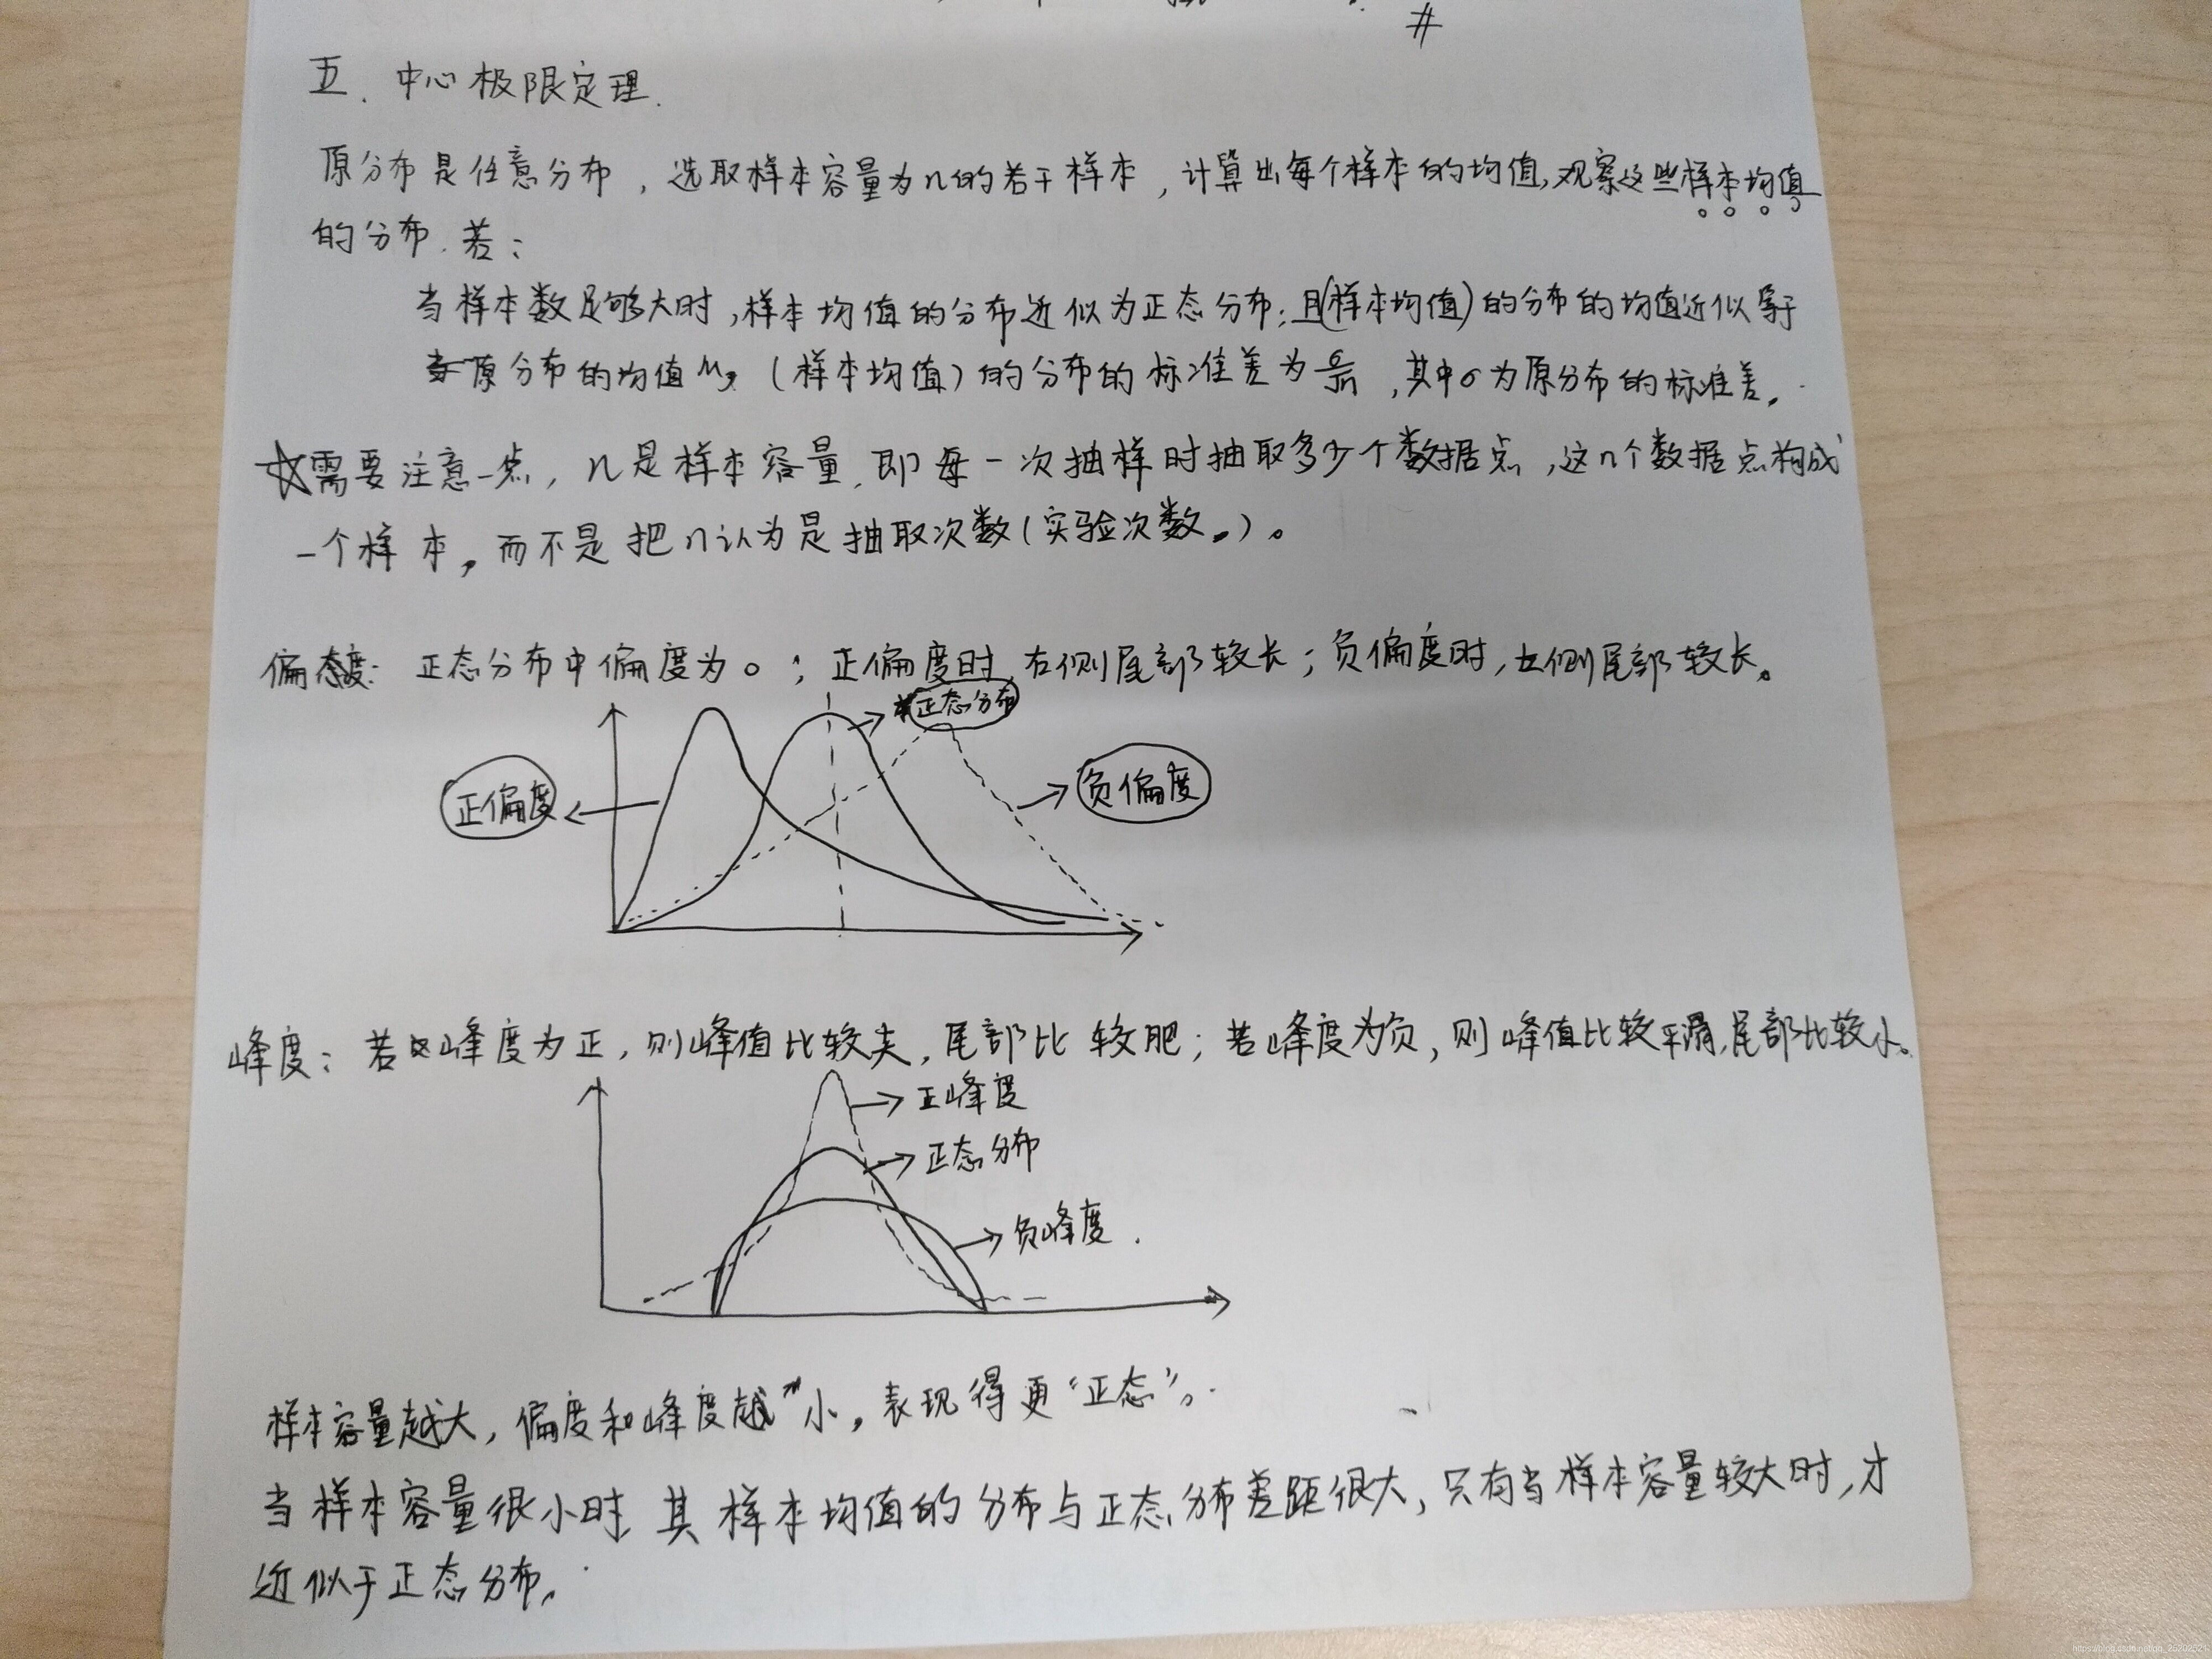 #
五. 中心极限定理.
原分布是任意分布，选取样本容量为n的若干样本，计算出每个样本的均值，观察这些样本均值
的分布.若：
当样本数足够大时，样本均值的分布近似为正态分布；且(样本均值)的分布的均值近似等于
原分布的均值μ，(样本均值)的分布的标准差为σ/√n，其中σ为原分布的标准差。
☆需要注意一点，n是样本容量，即每一次抽样时抽取多少个数据点，这n个数据点构成
一个样本，而不是把n认为是抽取次数(实验次数。)。
偏态度：正态分布中偏度为0；正偏度时，右侧尾部较长；负偏度时，左侧尾部较长。
正态分布
正偏度
负偏度
峰度：若峰度为正，则峰值比较尖，尾部比较肥；若峰度为负，则峰值比较平滑，尾部比较小。
正峰度
正态分布
负峰度.
样本容量越大，偏度和峰度越小，表现得更“正态”。
当样本容量很小时，其样本均值的分布与正态分布差距很大，只有当样本容量较大时，才
近似于正态分布。